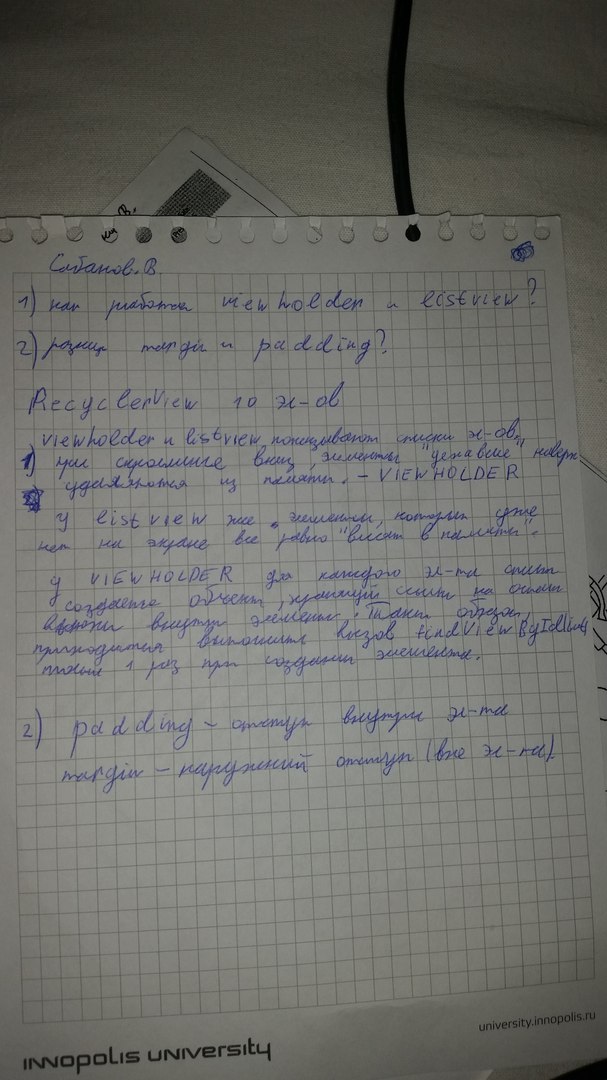 Сабанов.В.
1) как работает viewholder и listview?
2) разница margin и padding?
RecyclerView 10 эл-ов
viewholder и listview показывают списки эл-ов.
1) при скроллинге вниз, элементы "уехавшие" наверх
удаляются из памяти. - VIEWHOLDER
У listview же элементы, которых уже
нет на экране все равно "висят в памяти".
у VIEWHOLDER для каждого эл-та списка
создается объект, хранящий ссылки на
внутри элемента. Таким образом,
приходится выполнять вызов findViewById
только 1 раз при создании элемента.
2) padding - отступ внутри эл-та
margin - наружний отступ (вне эл-та)
INNOPOLIS UNIVERSITY
university.innopolis.ru